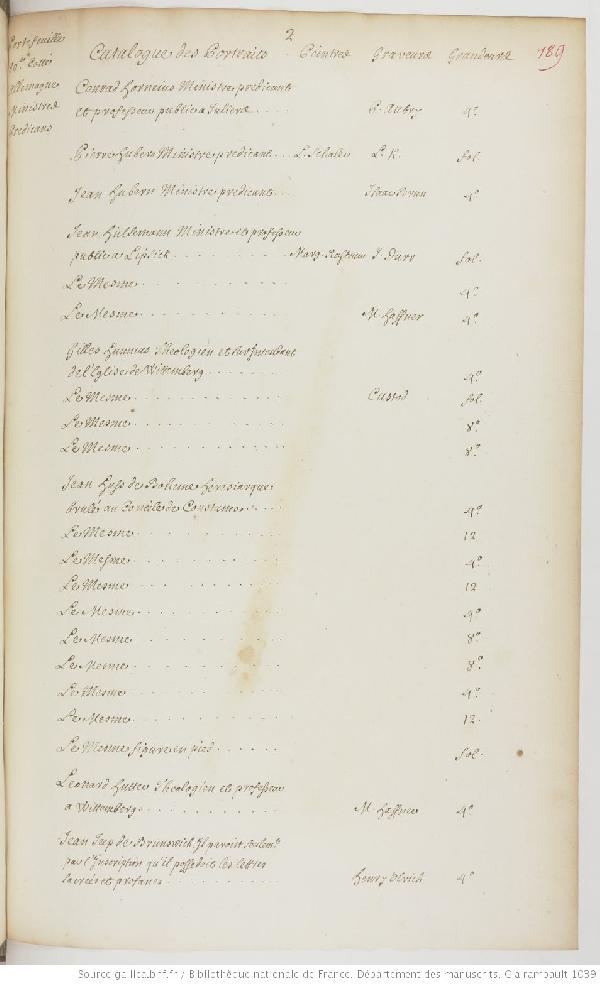 2
189
Portefeuille
Allemagne
Ministres
Predicans
Catalogue des Portraits Peintres Graveurs Grandeurs
Conrad Horneius Ministre predicant
et professeur public a Juliers . . . P. Aubry 4º
Pierre Hubert Ministre predicant . . . L. K. fol.
Jean Hubert Ministre predicant . . . 4º
Jean Hulsemann Ministre et professeur
public a Lipsick . . . J. Durr fol.
Le Mesme . . . 4º
Le Mesme . . . M. Haffner 4º
Gilles Hunnius Theologien et Surintendant
de l'Eglise de Wittemberg . . . 4º
Le Mesme . . . Custod fol.
Le Mesme . . . 8º
Le Mesme . . . 8º
Jean Huss de Boheme Heresiarque
brulé au Concile de Constance . . . 4º
Le Mesme . . . 12
Le Mesme . . . 4º
Le Mesme . . . 12
Le Mesme . . . 4º
Le Mesme . . . 8º
Le Mesme . . . 8º
Le Mesme . . . 4º
Le Mesme . . . 12.
Le Mesme figure en pied . . . fol.
Leonard Hutter Theologien et professeur
a Wittemberg . . . M. Haffner 4º
Jean Jup de Brunswich, Il paroit seulemt.
par l'Inscription qu'il possedoit les lettres
sacrées et profanes . . . Henry Olrich 4º
Source gallica.bnf.fr / Bibliothèque nationale de France. Département des manuscrits. Clairambault 1039